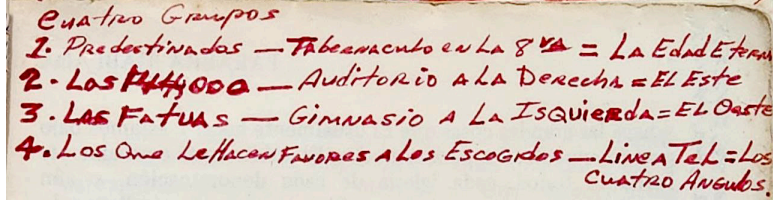 Cuatro Grupos
1. Predestinados — Tabernaculo en La 8va = La Edad Eterna
2. Los 144,000 — Auditorio A La Derecha = El Este
3. Las Fatuas — Gimnasio A La Isquierda = El Oeste
4. Los Que Le Hacen Favores A Los Escogidos — Linea Tel = Los
Cuatro Angulos.